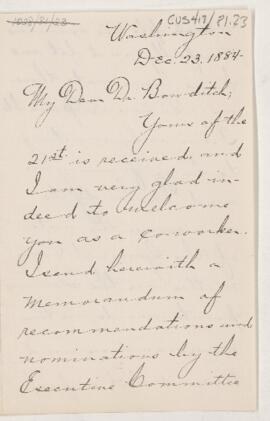 CUS4/17/81.23
Washington
Dec. 23, 1884.
My Dear Dr. Bowditch;
Yours of the
21st. is received and
I am very glad in-
deed to welcome
you as a coworker.
I send herewith a
memorandum of
recommendations and
nominations by the
Executive Committee